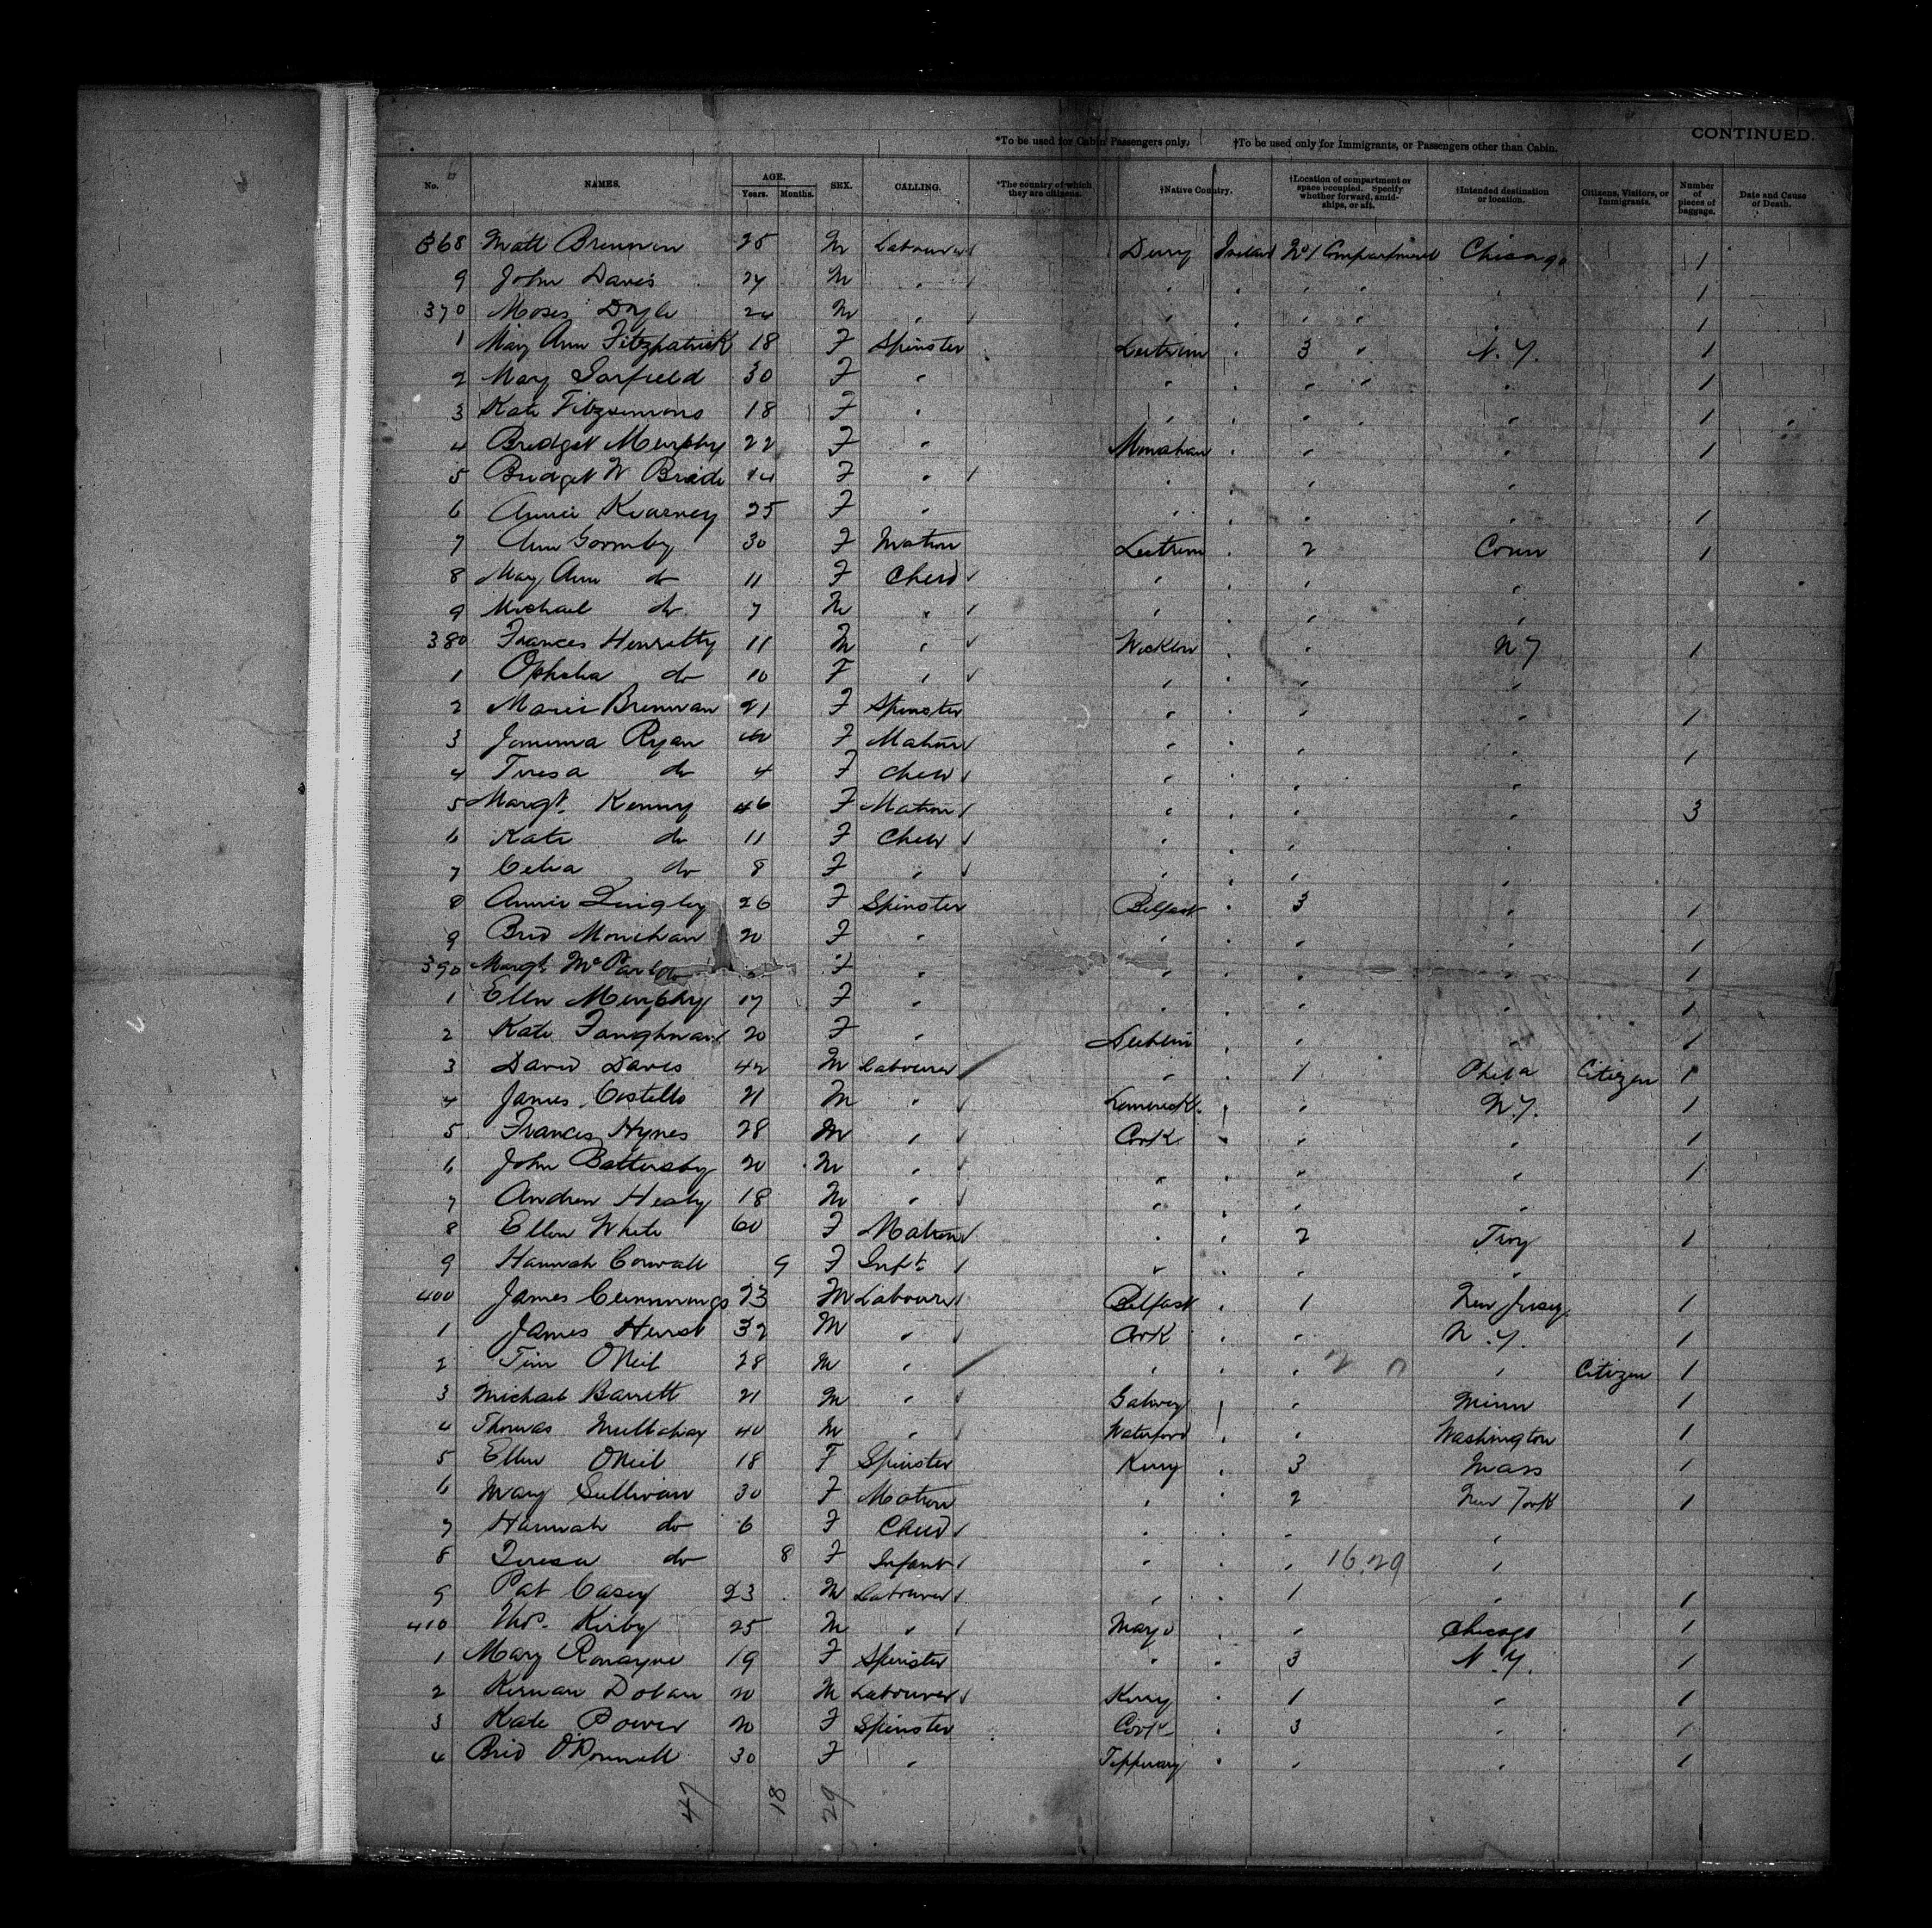 CONTINUED.
*To be used for Cabin Passengers only. †To be used only for Immigrants, or Passengers other than Cabin.
No. NAMES. AGE. Years. Months. SEX. CALLING. *The country of which they are citizens. †Native Country. †Location of compartment or space occupied. Specify whether forward, amidships, or aft. †Intended destination or location. Citizens, Visitors, or Immigrants. Number of pieces of baggage. Date and Cause of Death.
368 Matt Brennan 25 M Labourer Derry Ireland No 1 Compartment Chicago 1
9 John Davis 24 M " " " " " " 1
370 Moses Doyle 24 M " " " " " " 1
1 Mary Ann Fitzpatrick 18 F Spinster Leitrim " 3 " N.Y. 1
2 Mary Garfield 30 F " " " " " " 1
3 Kate Fitzsimons 18 F " " " " " " 1
4 Bridget Murphy 22 F " Monahan " " " 1
5 Bridget Mc Bride 14 F " " " " "
6 Annie Kearney 25 F " " " " " 1
7 Ann Gormley 30 F Matron Leitrim " 2 Conn 1
8 May Ann do 11 F Child " " " "
9 Michael do 7 M " " " " "
380 Frances Henratty 11 M " Wicklow " " N Y 1
1 Ophelia do 10 F " " " " "
2 Maria Brennan 21 F Spinster " " " " 1
3 Jemima Ryan 40 F Matron " " " " 1
4 Teresa do 4 F Child " " " "
5 Margt. Kenny 46 F Matron " " " " 3
6 Kate do 11 F Child " " " "
7 Celia do 8 F " " " " "
8 Annie Quigley 26 F Spinster Belfast " 3 " 1
9 Brid Monihan 20 F " " " " " 1
390 Margt. Mc F " " " " " 1
1 Ellen Murphy 17 F " " " " " 1
2 Kate 20 F " Dublin " " " 1
3 David Davis 42 M Labourer " " 1 Phila Citizen 1
4 James Costello 21 M " Limerick " " N.Y. 1
5 Frances Hynes 28 M " Cork " " " 1
6 John Battersby 20 M " " " " " 1
7 Andrew Healy 18 M " " " " "
8 Ellen White 60 F Matron " " 2 Troy 1
9 Hannah 9 F Inft. " " " "
400 James Cummings 23 M Labourer Belfast " 1 New Jersey 1
1 James Hurst 32 M " Cork " " N.Y. 1
2 Tim ONeil 28 M " " " " " Citizen 1
3 Michael Barrett 21 M " Galway " " Minn 1
4 Thomas Mullahay 40 M " Waterford " " Washington 1
5 Ellen ONeil 18 F Spinster Kerry " 3 Mass 1
6 Mary Sullivan 30 F Matron " " 2 New York 1
7 Hannah do 6 F Child " " " "
8 Teresa do 8 F Infant " " " 16.29 "
9 Pat Casey 23 M Labourer " " 1 " 1
410 Thos. Kirby 25 M " Mayo " " Chicago 1
1 Mary Ronayne 19 F Spinster " " 3 N.Y. 1
2 Kernan Dolan 20 M Labourer Kerry " 1 " 1
3 Kate Power 20 F Spinster Cork " 3 " 1
4 Brid O'Donnell 30 F " Tipperary " " " 1
47 18 29